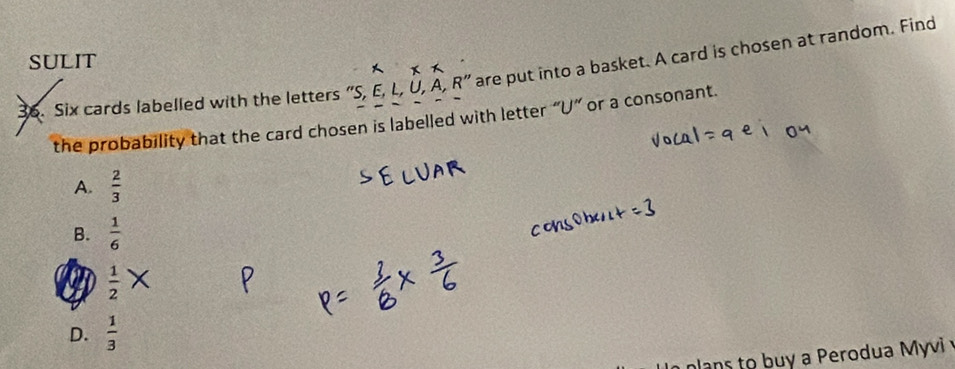 SULIT
36. Six cards labelled with the letters "S, E, L, U, A, R" are put into a basket. A card is chosen at random. Find
the probability that the card chosen is labelled with letter "U" or a consonant.
vocal = a e i o u
A. 2/3
SELUAR
B. 1/6
consonent = 3
1/2 ×
P
P = 3/6 × 3/6
D. 1/3
plans to buy a Perodua Myvi